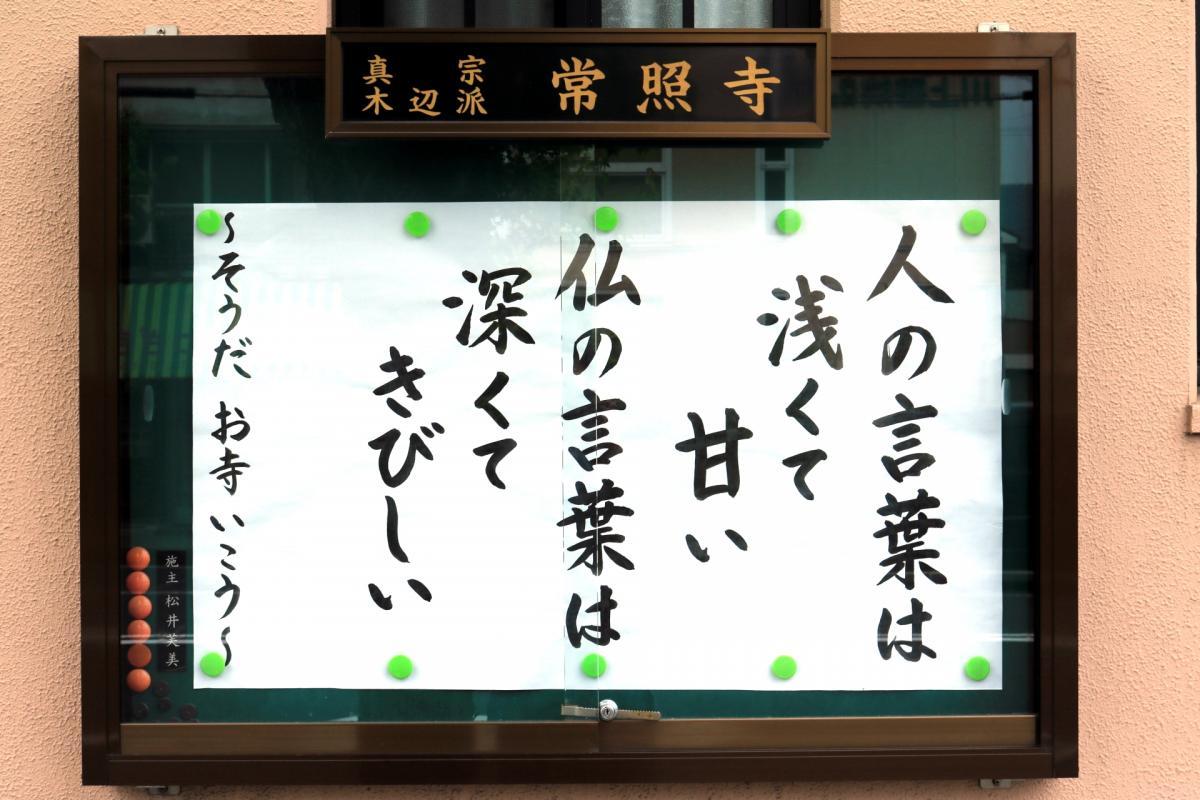 真宗
木辺派
常照寺
人の言葉は
浅くて
甘い
仏の言葉は
深くて
きびしい
～そうだ お寺いこう～
施主 松井芙美